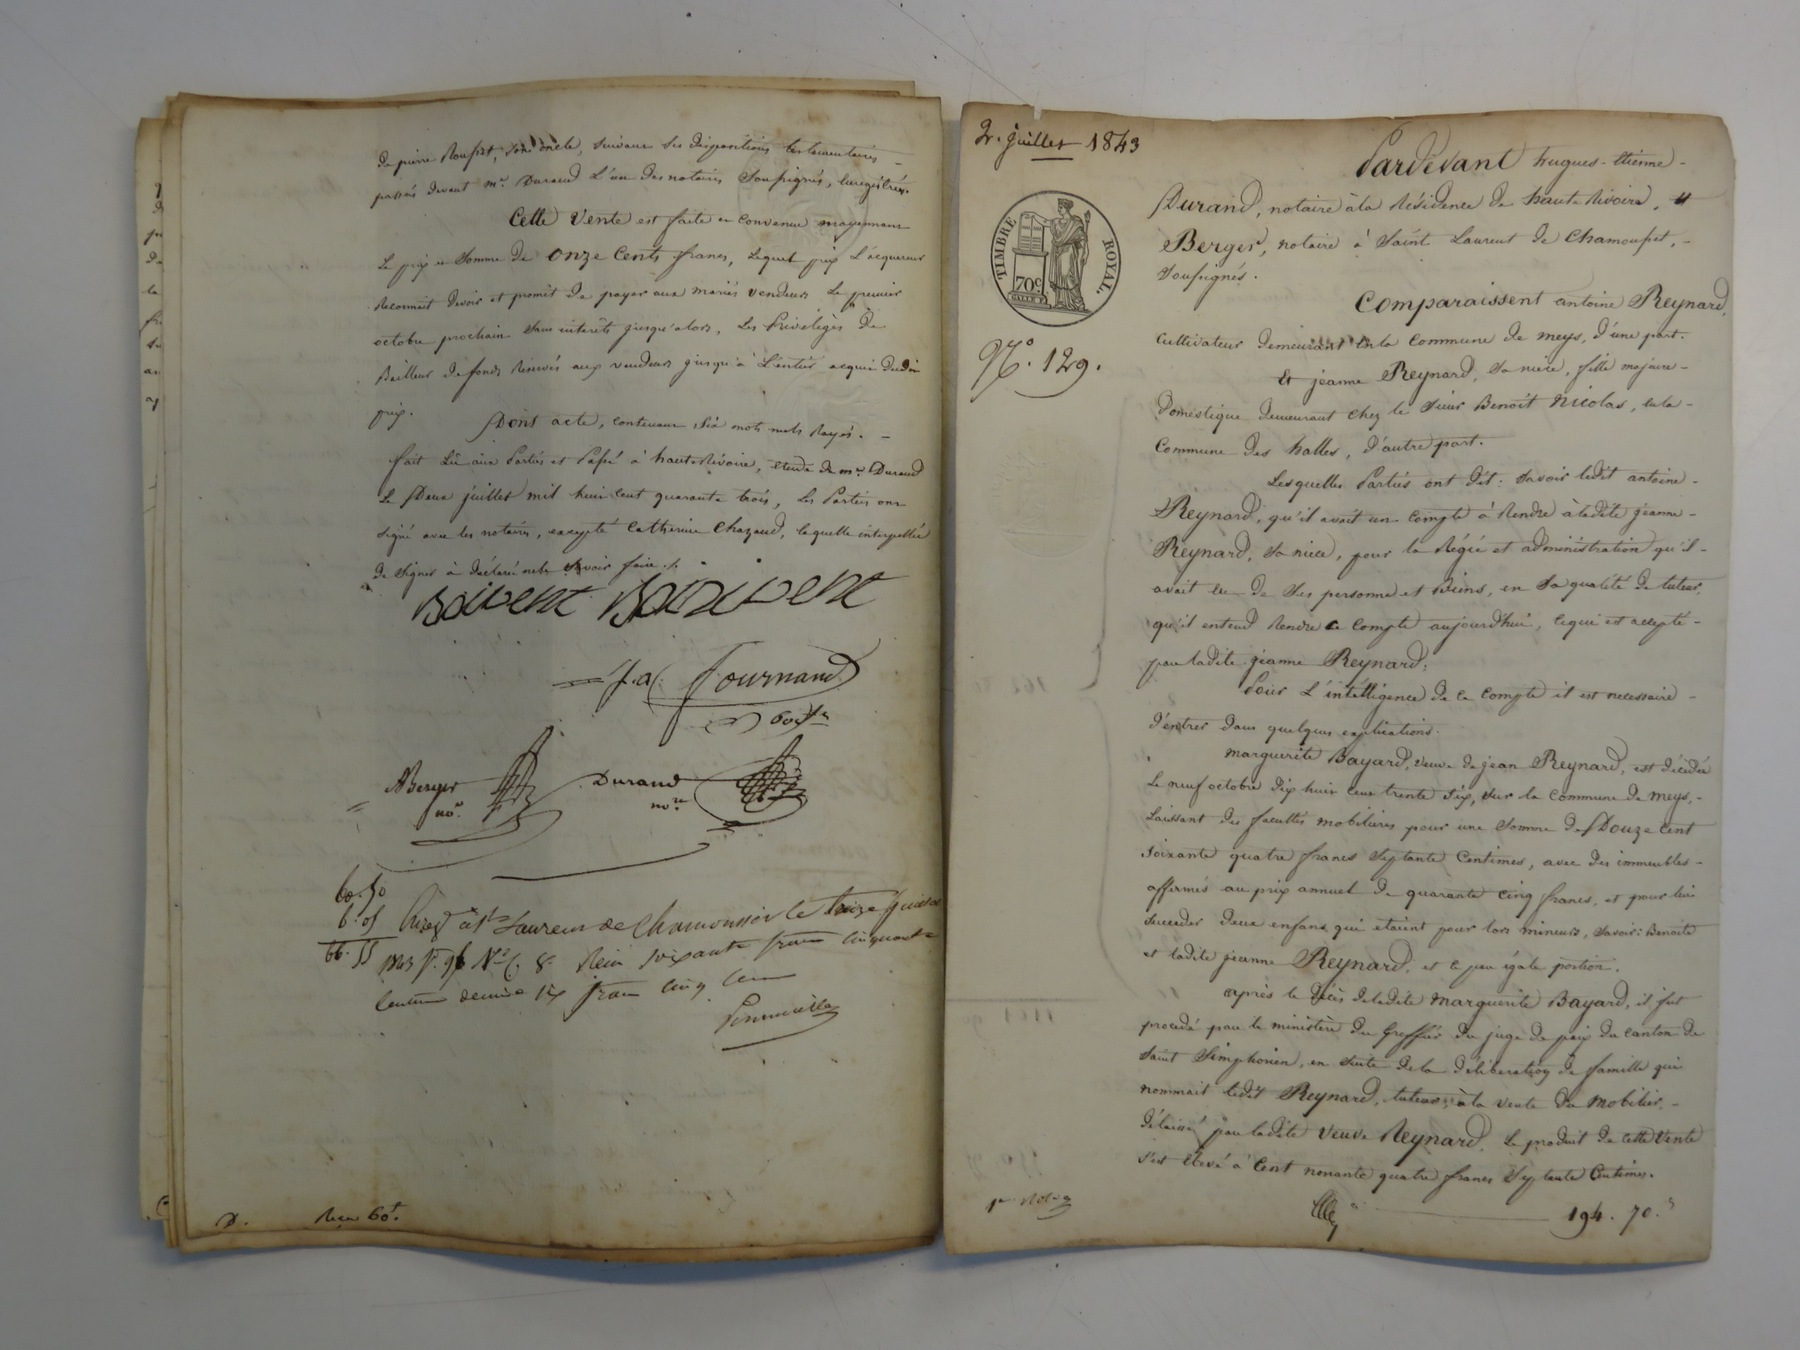 de pierre Roufset, son oncle, suivant ses dispositions testamentaires -
passés devant me. Durand L'un des notaires soufsignés, Enregistrées.
Cette Vente est faite et convenue moyennant
Le prix et Somme de Onze Cents francs, Lequel prix L'acquereur
Reconnait devoir et promet de payer aux mariés vendeurs Le premier
octobre prochain sans interêts jusqu'alors, Les Privilèges de
Bailleur de fonds Réservés aux vendeurs jusqu'à L'entier acquit dudit
prix.
Dont acte, contenant Six mots nuls Rayés. -
fait Lû aux Parties et Pafsé à hauterivoire, étude de me. Durand
Le Deux juillet mil huit cent quarante trois, Les Parties ont
signé avec les notaires, excepté Catherine Chazaud, laquelle interpellée
de signer à déclaré ne le savoir faire ./.
Boivent Boivent
J. a. Fournand
ABerger
nore.
Durand
nore.
60.50
6.05
66.55
Enregé à St Laurent de Chamousset le treize juillet
1843 fo. 96 Vo C. 8. Reçu soixante francs cinquante
Centimes decime six francs cinq cent
D. Reçu 60f.
2. juillet 1843
TIMBRE ROYAL.
70c.
No. 129.
Pardevant hugues-étienne -
Durand, notaire à la Résidence de haute Rivoire, et
Berger, notaire à Saint Laurent de Chamoufset, -
Soufsignés.
Comparaissent antoine Reynard,
Cultivateur demeurant en la Commune de meys, d'une part.
Et jeanne Reynard, sa nièce, fille majeure -
domestique demeurant chez le sieur Benoit Nicolas, en la -
Commune des halles, d'autre part.
Lesquelles Parties ont dit: savoir ledit antoine -
Reynard, qu'il avait un Compte à Rendre à ladite jeanne -
Reynard, sa nièce, pour la Régie et administration qu'il -
avait eu de ses personne et Biens, en sa qualité de tuteur,
qu'il entend Rendre ce Compte aujourd'hui, ce qui est accepté -
par ladite jeanne Reynard;
Pour L'intelligence de ce Compte il est necessaire -
d'entrer dans quelques explications.
Marguerite Bayard, veuve de jean Reynard, est décédée
Le neuf octobre dix huit cent trente six, sur la Commune de meys, -
Laissant des facultés mobilières pour une Somme de Douze Cent
soixante quatre francs Septante Centimes, avec des immeubles -
affermés au prix annuel de quarante cinq francs, et pour lui
succeder deux enfans qui etaient pour lors mineurs, savoir: Benoite
et ladite jeanne Reynard, et ce par égale portion.
après le décès de ladite Marguerite Bayard, il fut
procedé par le ministère du Greffier du juge de paix du canton de
Saint Simphorien, en suite de la délibération de famille qui
nommait ledit Reynard, tuteur, à la vente du Mobilier, -
délaissé par ladite Veuve Reynard. Le produit de cette Vente
s'est élevé à Cent nonante quatre francs Septante Centimes.
194. 70.c